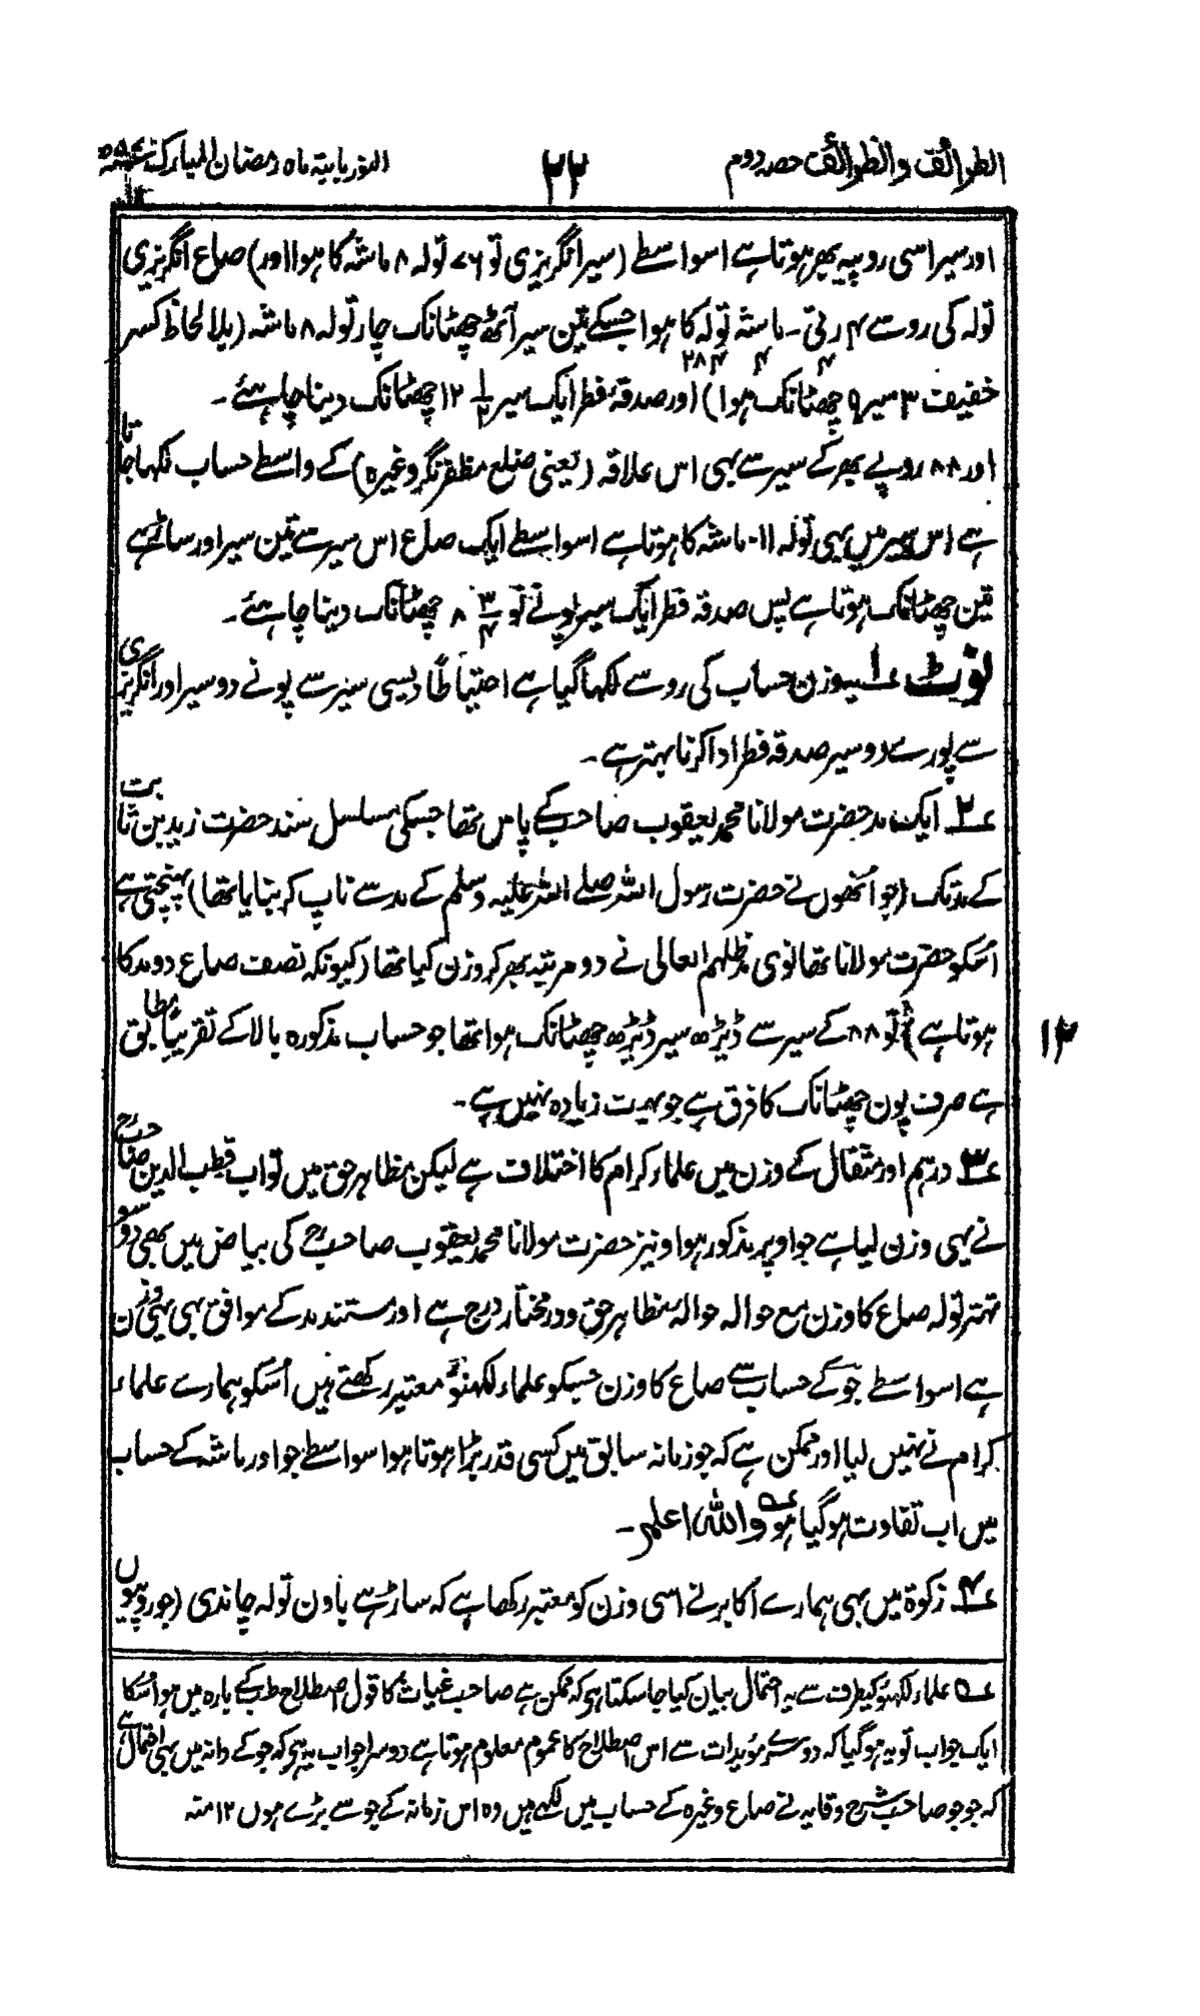 الطرائف والظرائف حصہ دوم
۲۲
النور بابتہ ماہ رمضان المبارک
اور سیر اسی روپیہ بھر ہوتا ہے اسواسطے (سیر انگریزی تو ۷۶ تولہ ۸ ماشہ کا ہوا اور) صاع انگریزی
تولہ کی روسے ۴ رتی۔ ماشہ تولہ کا ہوا جسکے تین سیر آٹھ چھٹانک چار تولہ ۸ ماشہ (بلالحاظ کسر
۴ ۴ ۲۸۴
خفیف ۳ سیر ۹ چھٹانک ہوا) اور صدقۂ فطر ایک سیر ۱/۲ ۱۲ چھٹانک دینا چاہئے۔
اور ۸۸ روپے بھر کے سیر سے بہی اس علاقہ (یعنی ضلع مظفر نگر وغیرہ) کے واسطے حساب لکہا جاتا
ہے اس سیر میں بہی تولہ ۱۱۔ ماشہ کا ہوتا ہے اسواسطے ایک صاع اس سیر سے تین سیر اور ساڑہے
تین چھٹانک ہوتا ہے پس صدقہ فطر ایک سیر پونے نو ۳/۴ ۸ چھٹانک دینا چاہئے۔
نوٹ ۱؎ یہ وزن حساب کی روسے لکہا گیا ہے احتیاطاً دیسی سیر سے پونے دو سیر اور انگریزی
سے پورے دو سیر صدقہ فطر ادا کرنا بہتر ہے۔
۲؎ ایک مد حضرت مولانا محمد یعقوب صاحب کے پاس تھا جسکی مسلسل سند حضرت زید بن ثابت
کے مد تک (جو انھوں نے حضرت رسول اللہ صلے اللہ علیہ وسلم کے مد سے ناپ کر بنایا تھا) پہنچتی ہے
اسکو حضرت مولانا تھانوی مدظلہم العالی نے دو مرتبہ بھر کر وزن کیا تھا (کیونکہ نصف صاع دو مد کا
ہوتا ہے) تو ۸۸ کے سیر سے ڈیڑھ سیر ڈیڑھ چھٹانک ہوا تھا جو حساب مذکورہ بالا کے تقریباً مطابق
۱۳
ہے صرف پون چھٹانک کا فرق ہے جو بہت زیادہ نہیں ہے۔
۳؎ درہم اور مثقال کے وزن میں علماء کرام کا اختلاف ہے لیکن مظاہر حق میں نواب قطب الدین صاحبؒ
نے یہی وزن لیا ہے جو اوپر مذکور ہوا و نیز حضرت مولانا محمد یعقوب صاحبؒ کی بیاض میں بھی دو سو
تہتر تولہ صاع کا وزن مع حوالہ حوالہ مظاہر حق و درمختار درج ہے اور مستند مد کے موافق بہی یہی وزن
ہے اسواسطے جو کے حساب سے صاع کا وزن جسکو علماء لکہنؤ معتبر رکھتے ہیں اسکو ہمارے علماء
کرام نے نہیں لیا اور ممکن ہے کہ جو زمانہ سابق میں کسی قدر بڑا ہوتا ہو اسواسطے جو اور ماشہ کے حساب
میں اب تفاوت ہوگیا ہو عہ واللہ اعلم۔
۴؎ زکوۃ میں بہی ہمارے اکابر نے اسی وزن کو معتبر رکھا ہے کہ ساڑہے باون تولہ چاندی (جو روپیوں
عہ علماء لکہنؤ کیطرف سے یہ احتمال بیان کیا جا سکتا ہی کہ ممکن ہے صاحب غیاث کا قول اصطلاح طب کے بارہ میں ہو اسکا
ایک جواب تو یہ ہوگیا کہ دوسرے مؤیدات سے اس اصطلاح کا عموم معلوم ہوتا ہے دوسرا جواب یہ ہی کہ جو کے دانہ میں بہی احتمال ہے
کہ جو جو صاحب شرح وقایہ نے صاع وغیرہ کے حساب میں لکہے ہیں وہ اس زمانہ کے جو سے بڑے ہوں ۱۲ منہ